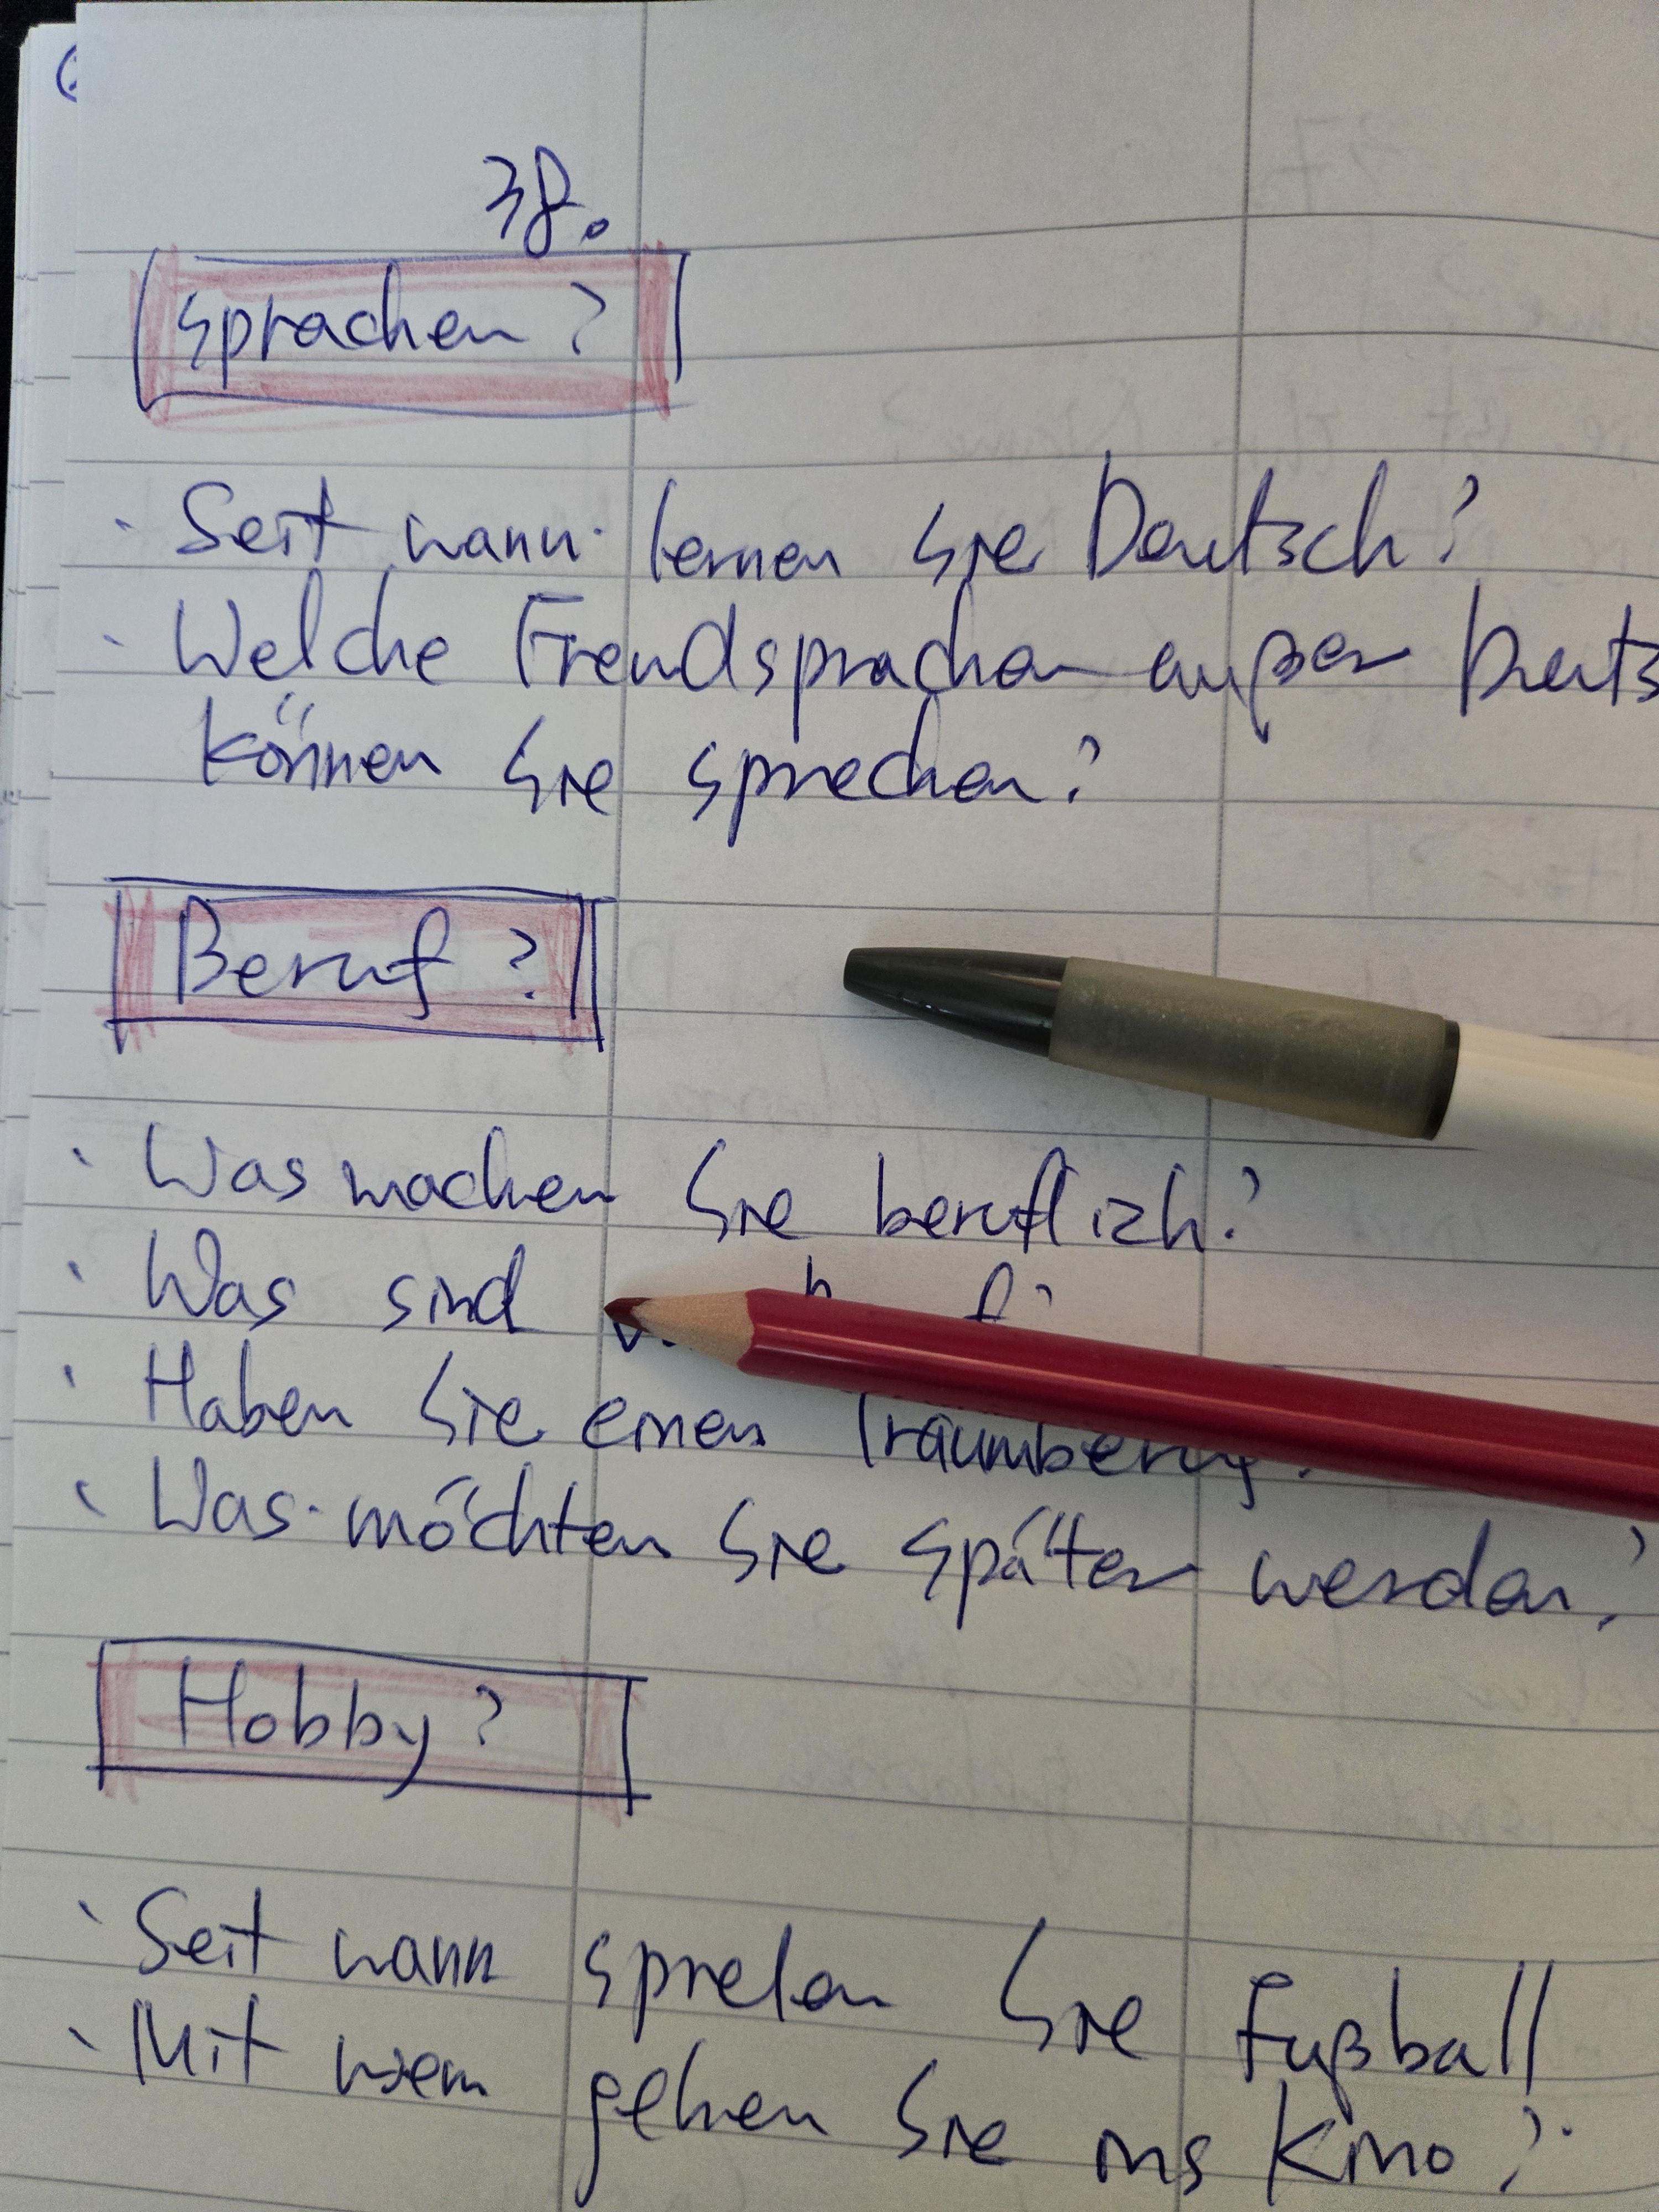 38.
Sprachen?
· Seit wann lernen Sie Deutsch?
· Welche Fremdsprachen außer Deuts
können Sie sprechen?
Beruf?
· Was machen Sie beruflich?
· Was sind
· Haben Sie einen Traumberuf?
· Was möchten Sie später werden?
Hobby?
· Seit wann spielen Sie Fußball
· Mit wem gehen Sie ins Kino?